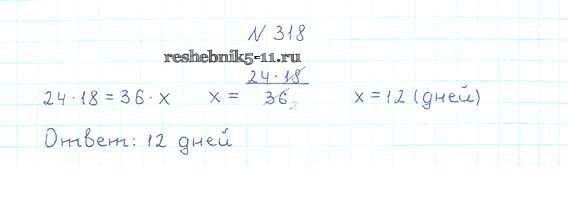 N 318
reshebnik5-11.ru
24·18 = 36·x x = 24·18/36 2 x = 12 (дней)
Ответ: 12 дней